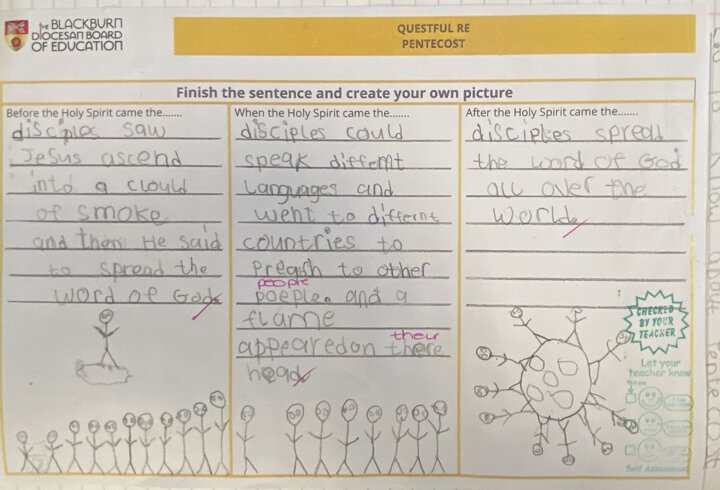 The BLACKBURN
DIOCESAN BOARD
OF EDUCATION
QUESTFUL RE
PENTECOST
Finish the sentence and create your own picture
Before the Holy Spirit came the.......
disciples saw
Jesus ascend
into a clould
of smoke
and then He said
to spread the
word of God
When the Holy Spirit came the.......
disciples could
speak differnt
Languages and
went to differnt
countries to
Preash to other
people
poeple. and a
flame
their
appearedon there
head
After the Holy Spirit came the.......
disciples spread
the word of God
all over the
World
CHECKED
BY YOUR
TEACHER
Let your
teacher know
Self Assessment